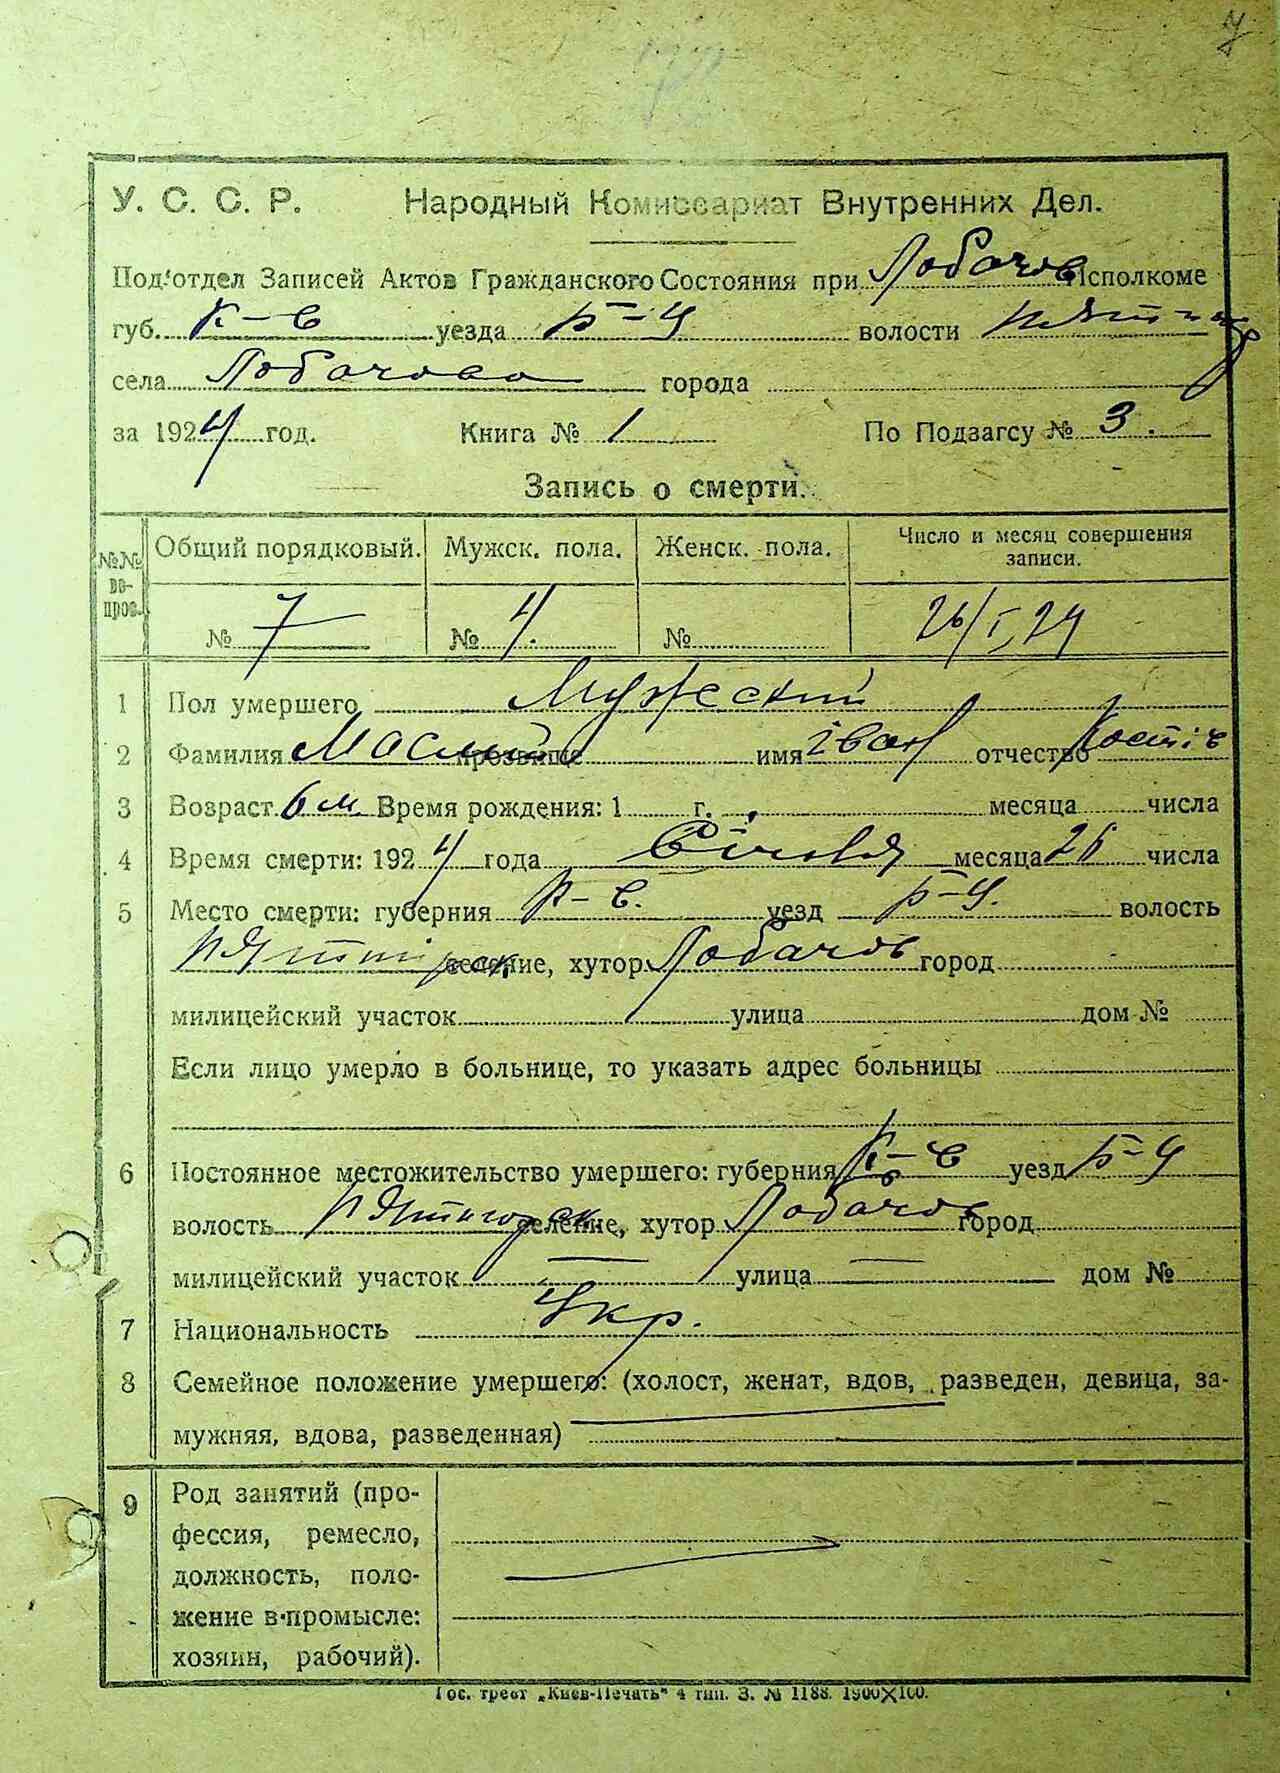 7
У. С. С. Р. Народный Комиссариат Внутренних Дел.
Под'отдел Записей Актов Гражданского Состояния при Лобачов Исполкоме
губ. К-в уезда Б-Ц волости
села Лобачова города
за 1924 год. Книга № 1 По Подзагсу № 3.
Запись о смерти.
№№ во-прос. Общий порядковый. Мужск. пола. Женск. пола. Число и месяц совершения записи.
№ 7 № 4. № 26/I, 24
1 Пол умершего Мужеский
2 Фамилия Маслий прозвище имя Іван отчество Костів
3 Возраст 6 м. Время рождения: 1 г. месяца числа
4 Время смерти: 1924 года Січня месяца 26 числа
5 Место смерти: губерния К-в. уезд Б-Ц. волость
селение, хутор Лобачов город
милицейский участок улица дом №
Если лицо умерло в больнице, то указать адрес больницы
6 Постоянное местожительство умершего: губерния К-в уезд Б-Ц
волость Пятигорск селение, хутор Лобачов город
милицейский участок — улица — дом №
7 Национальность Укр.
8 Семейное положение умершего: (холост, женат, вдов, разведен, девица, за-
мужняя, вдова, разведенная)
9 Род занятий (про-
фессия, ремесло,
должность, поло-
жение в промысле:
хозяин, рабочий).
Гос. трест „Киев-Печать" 4 тип. З. № 1188. 1900X100.